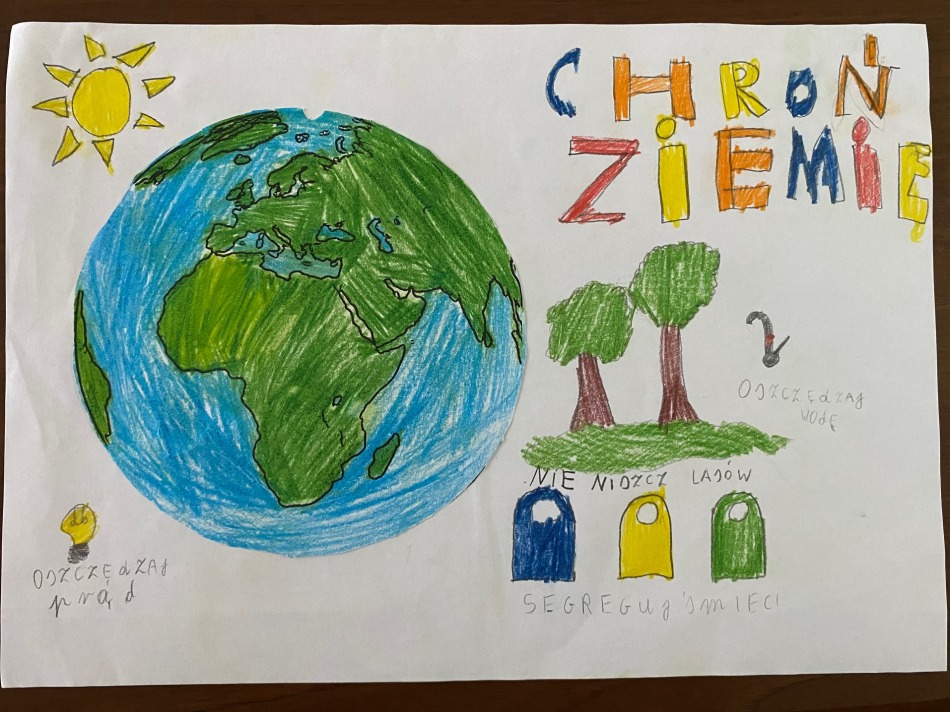 CHROŃ
ZiEMiĘ
OSZCZĘdZAJ
WODĘ
NIE NISZCZ LASÓW
OSZCZĘdZAJ
prąd
SEGREGUJ ŚmIECI